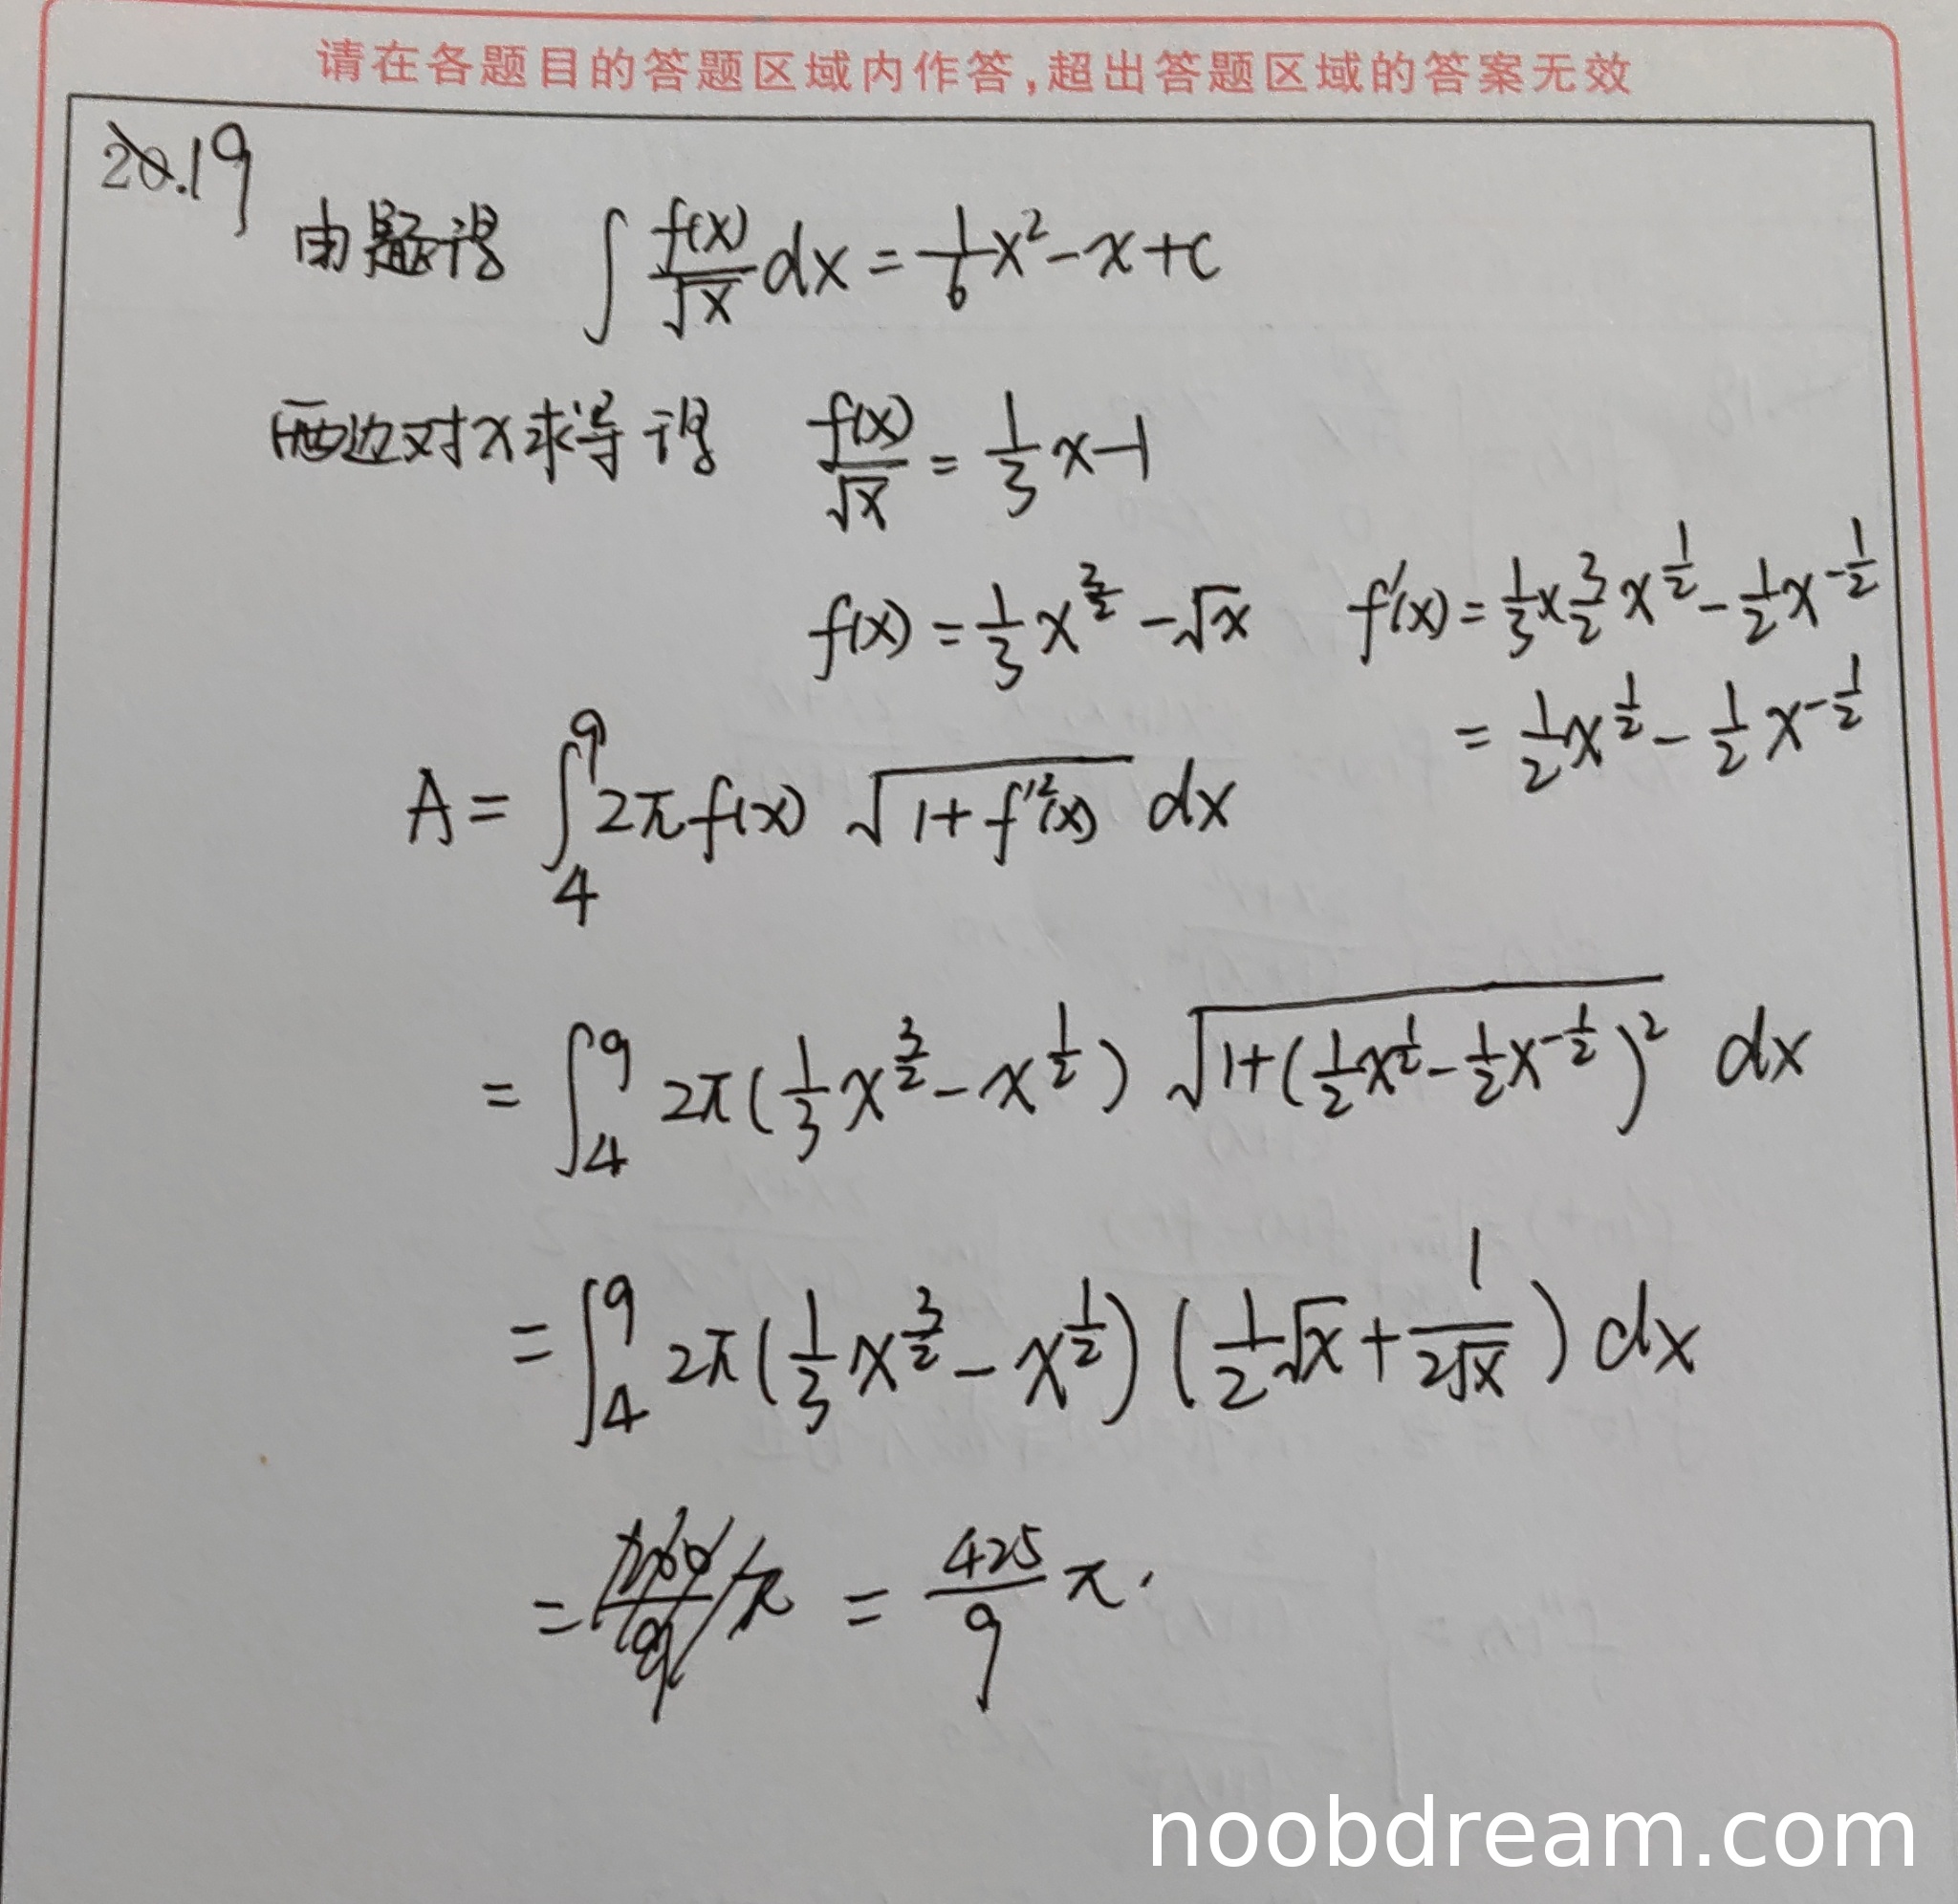 请在各题目的答题区域内作答,超出答题区域的答案无效
20.19
由题得 ∫ f(x)/√x dx = 1/6 x² - x + C
两边对x求导得 f(x)/√x = 1/3 x - 1
f(x) = 1/3 x^(3/2) - √x f'(x) = 1/3 × 3/2 x^(1/2) - 1/2 x^(-1/2)
= 1/2 x^(1/2) - 1/2 x^(-1/2)
A = ∫₄⁹ 2π f(x) √(1+f'²(x)) dx
= ∫₄⁹ 2π (1/3 x^(3/2) - x^(1/2)) √(1+(1/2 x^(1/2) - 1/2 x^(-1/2))²) dx
= ∫₄⁹ 2π (1/3 x^(3/2) - x^(1/2)) (1/2 √x + 1/(2√x)) dx
= = 425/9 π.
noobdream.com